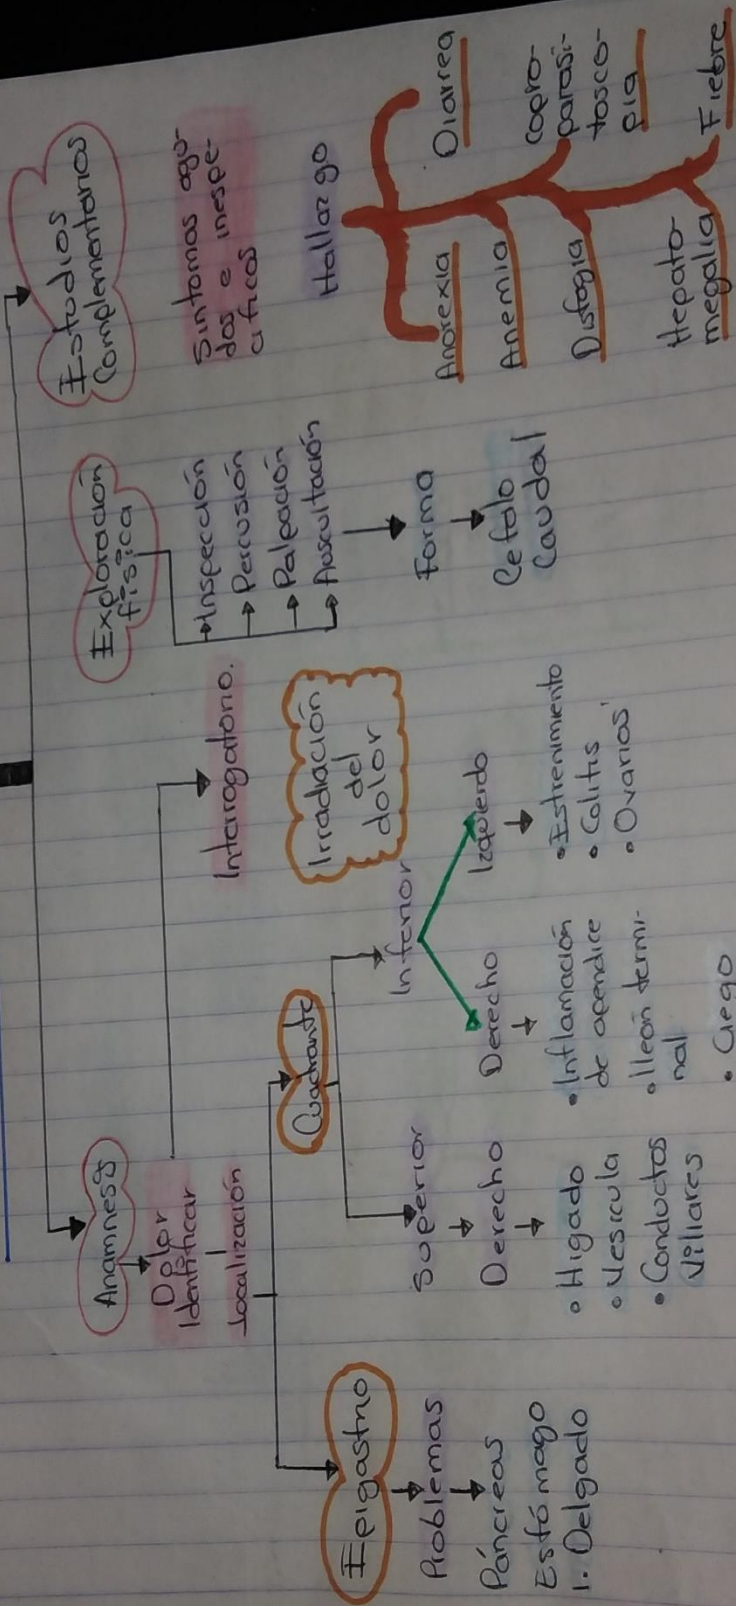 Anamnesis
Dolor
Identificar
Localización
Epigastrio
Problemas
Páncreas
Estómago
I. Delgado
Cuadrante
Superior
Derecho
• Hígado
• Vesícula
• Conductos
Villares
Inferior
Derecho
• Inflamación
de apéndice
• Ileón termi-
nal
• Ciego
Izquierdo
• Estreñimiento
• Colitis
• Ovarios
Interrogatorio.
Irradiación
del
dolor
Exploración
física
Inspección
Percusión
Palpación
Auscultación
Forma
Cefalo
Caudal
Estudios
Complementarios
Síntomas agu-
dos e inespe-
cificos
Hallazgo
Anorexia
Anemia
Disfagia
Hepato-
megalia
Diarrea
Copro-
parasi-
tosco-
pia
Fiebre